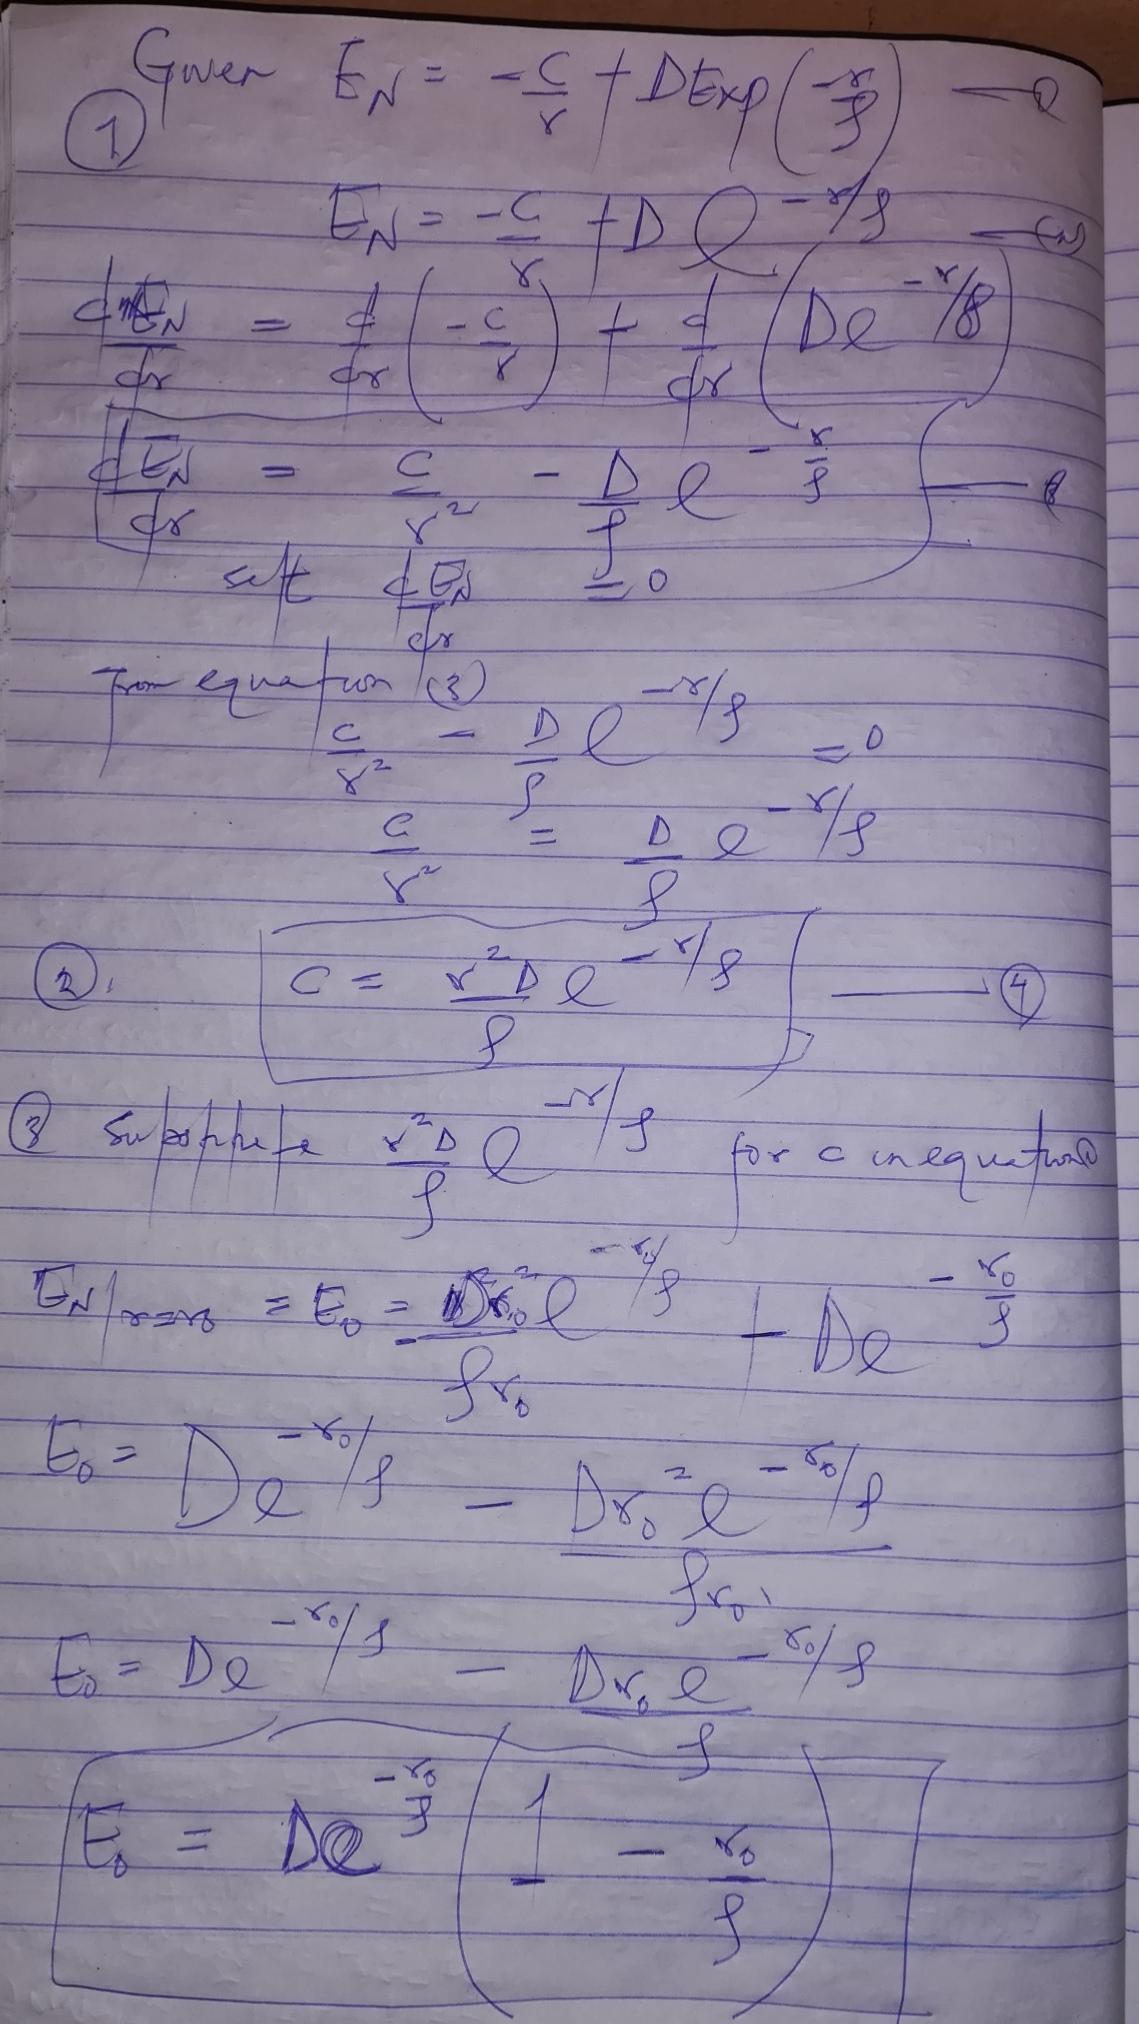 Given E_N = -C/r + D Exp(-r/ρ) —①
①
E_N = -C/r + D e^{-r/ρ} —(2)
dE_N/dr = d/dr(-C/r) + d/dr(De^{-r/ρ})
dE_N/dr = C/r² - D/ρ e^{-r/ρ} —
set dE_N/dr = 0
From equation (3)
C/r² - D/ρ e^{-r/ρ} = 0
C/r² = D/ρ e^{-r/ρ}
②. C = r²D/ρ e^{-r/ρ} —④
③ Substitute r²D/ρ e^{-r/ρ} for C in equation①
E_N/r=r₀ = E₀ = -Dr₀²e^{-r₀/ρ}/ρr₀ + De^{-r₀/ρ}
E₀ = De^{-r₀/ρ} - Dr₀²e^{-r₀/ρ}/ρr₀
E₀ = De^{-r₀/ρ} - Dr₀e^{-r₀/ρ}/ρ
E₀ = De^{-r₀/ρ} (1 - r₀/ρ)